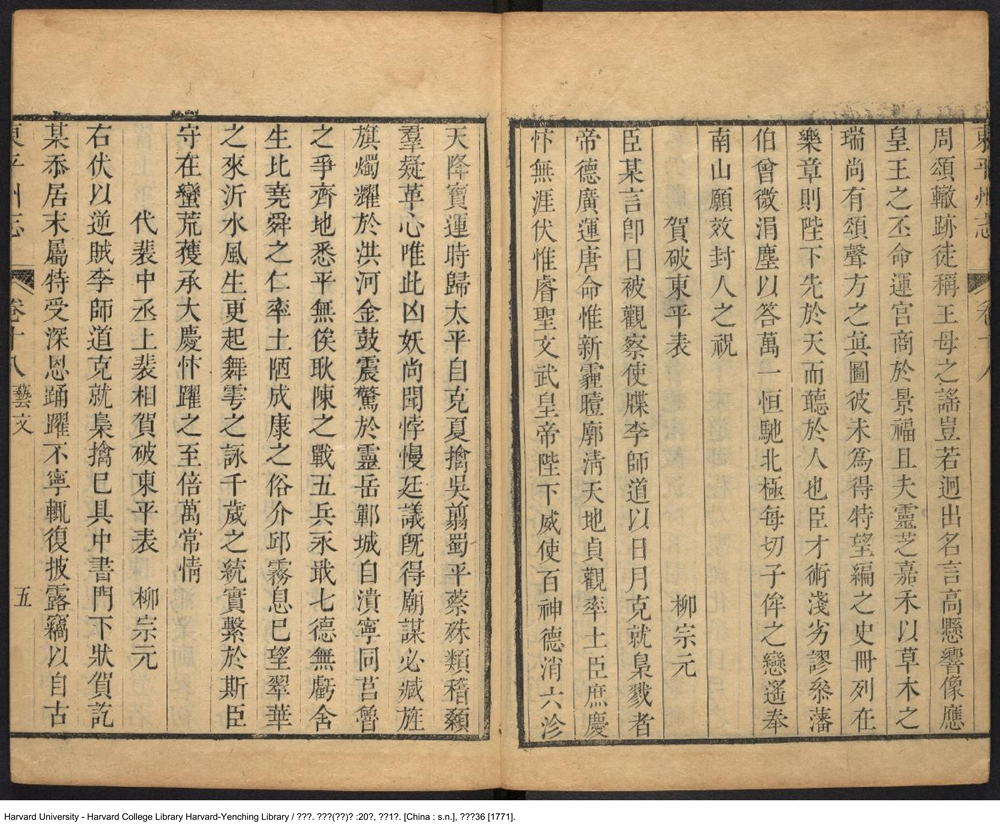 東平州志
卷十八
周頌轍跡徒稱王母之謠豈若迥出名言高懸響像應
皇王之丕命運宮商於景福且夫靈芝嘉禾以草木之
瑞尚有頌聲方之蓂圖彼未爲得特望編之史冊列在
樂章則陛下先於天而聽於人也臣才術淺劣謬叅藩
伯曾微涓塵以答萬一恒馳北極每切子侔之戀遙奉
南山願效封人之祝
賀破東平表 柳宗元
臣某言卽日被觀察使牒李師道以日月克就梟戮者
帝德廣運唐命惟新霾曀廓淸天地貞觀率土臣庶慶
忭無涯伏惟睿聖文武皇帝陛下威使百神德消六沴
天降寶運時歸太平自克夏擒吳翦蜀平蔡殊類稽顙
羣疑革心唯此凶妖尚聞悖慢廷議旣得廟謀必臧旌
旗燭耀於洪河金鼓震驚於靈岳鄆城自潰寧同莒魯
之爭齊地悉平無俟耿陳之戰五兵永戢七德無虧含
生比堯舜之仁率土陋成康之俗介邱霧息巳望翠華
之來沂水風生更起舞雩之詠千歲之統實繫於斯臣
守在蠻荒獲承大慶忭躍之至倍萬常情
代裴中丞上裴相賀破東平表 柳宗元
右伏以逆賊李師道克就梟擒巳具中書門下狀賀訖
某忝居末屬特受深恩踊躍不寧輒復披露竊以自古
東平州志 卷十八 藝文 五
Harvard University - Harvard College Library Harvard-Yenching Library / ???. ???(??)? :20?, ??1?. [China : s.n.], ???36 [1771].